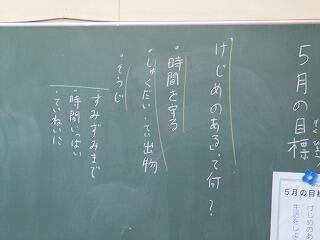 ５月の目標
「けじめのある」って何？
・時間を守る
・しゅくだい・てい出物
・そうじ
すみずみまで
・時間いっぱい
・ていねいに
５月の目標
けじめのある
生活をしよ